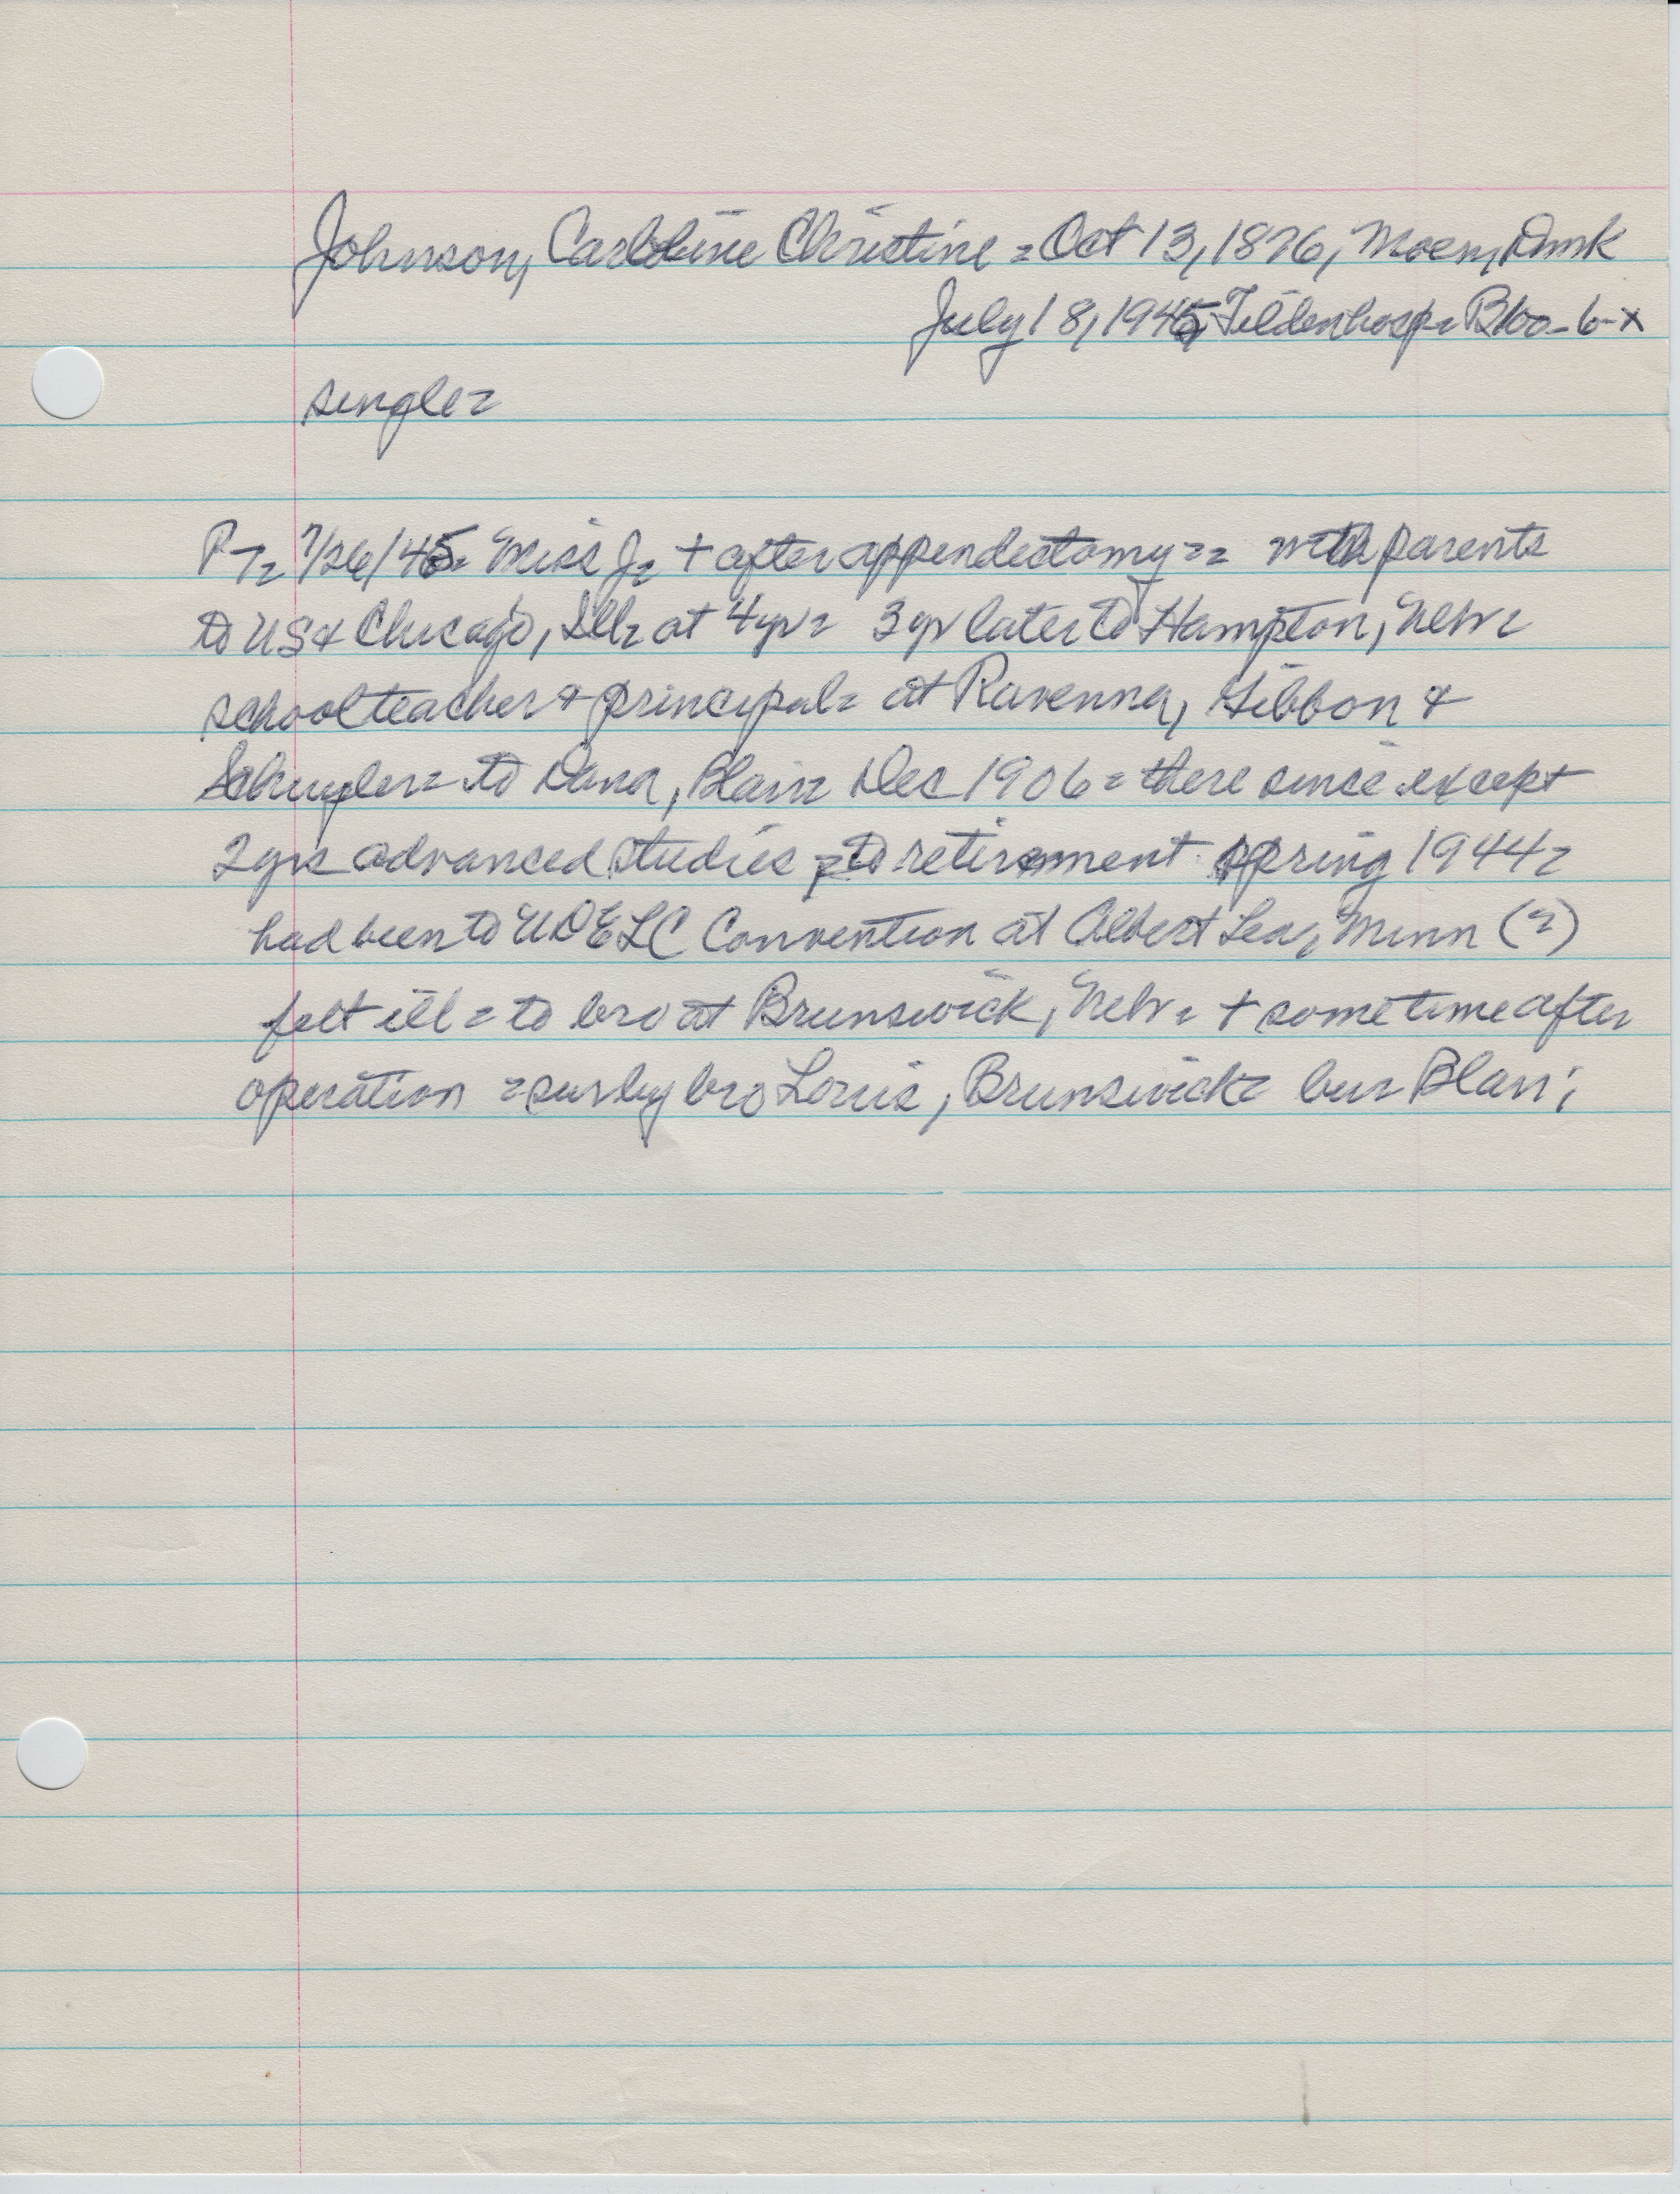 Johnson, Caroline Christine = Oct 13, 1876, Moen, Dmk
July 18, 1945, Tilden hosp = B 160-6-x
single =
P7 = 7/26/45 = Miss J = + after appendectomy == with parents
to US & Chicago, Ill = at 4 yr = 3 yr later to Hampton, Nebr =
school teacher & principal = at Ravenna, Gibbon &
Schuyler = to Dana, Blair = Dec 1906 = there since except
2 yrs advanced studies = to retirement spring 1944 =
had been to UDELC Convention at Albert Lea, Minn (?)
felt ill = to bro at Brunswick, Nebr = + some time after
operation = sur by bro Louis, Brunswick = bur Blair;